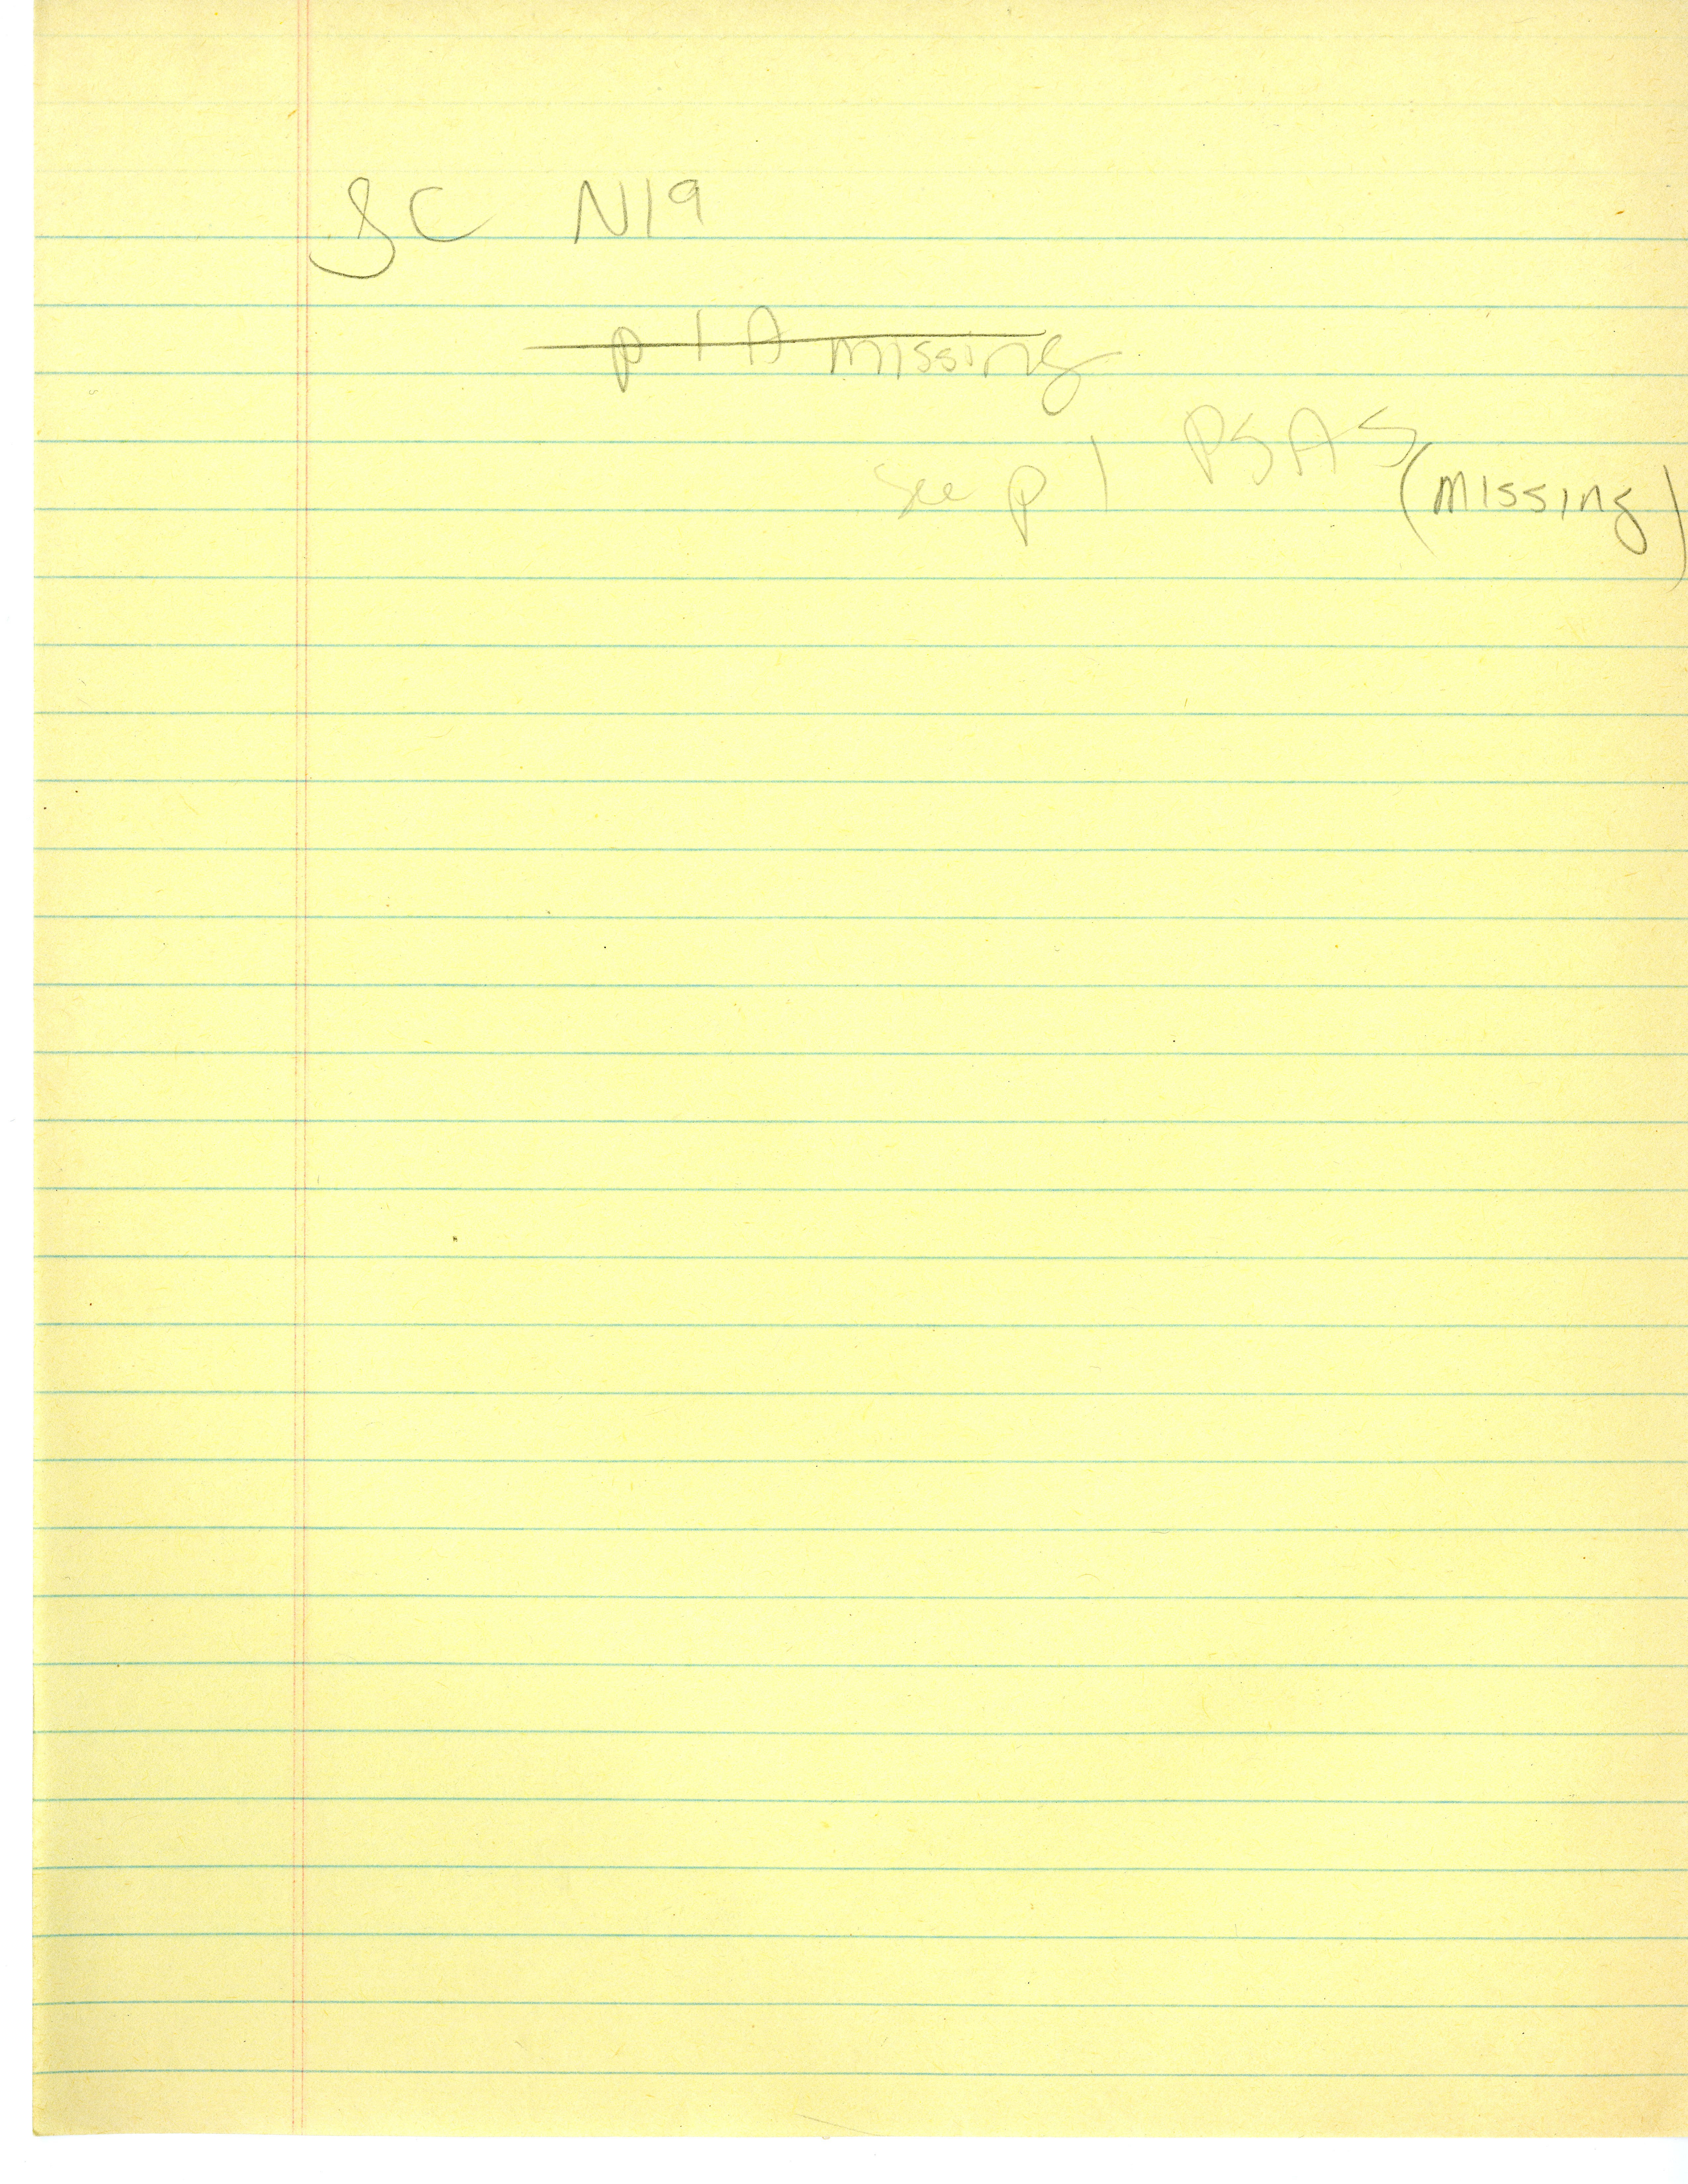 SC N19
p 1 A missing
see p 1 PSAS (missing)